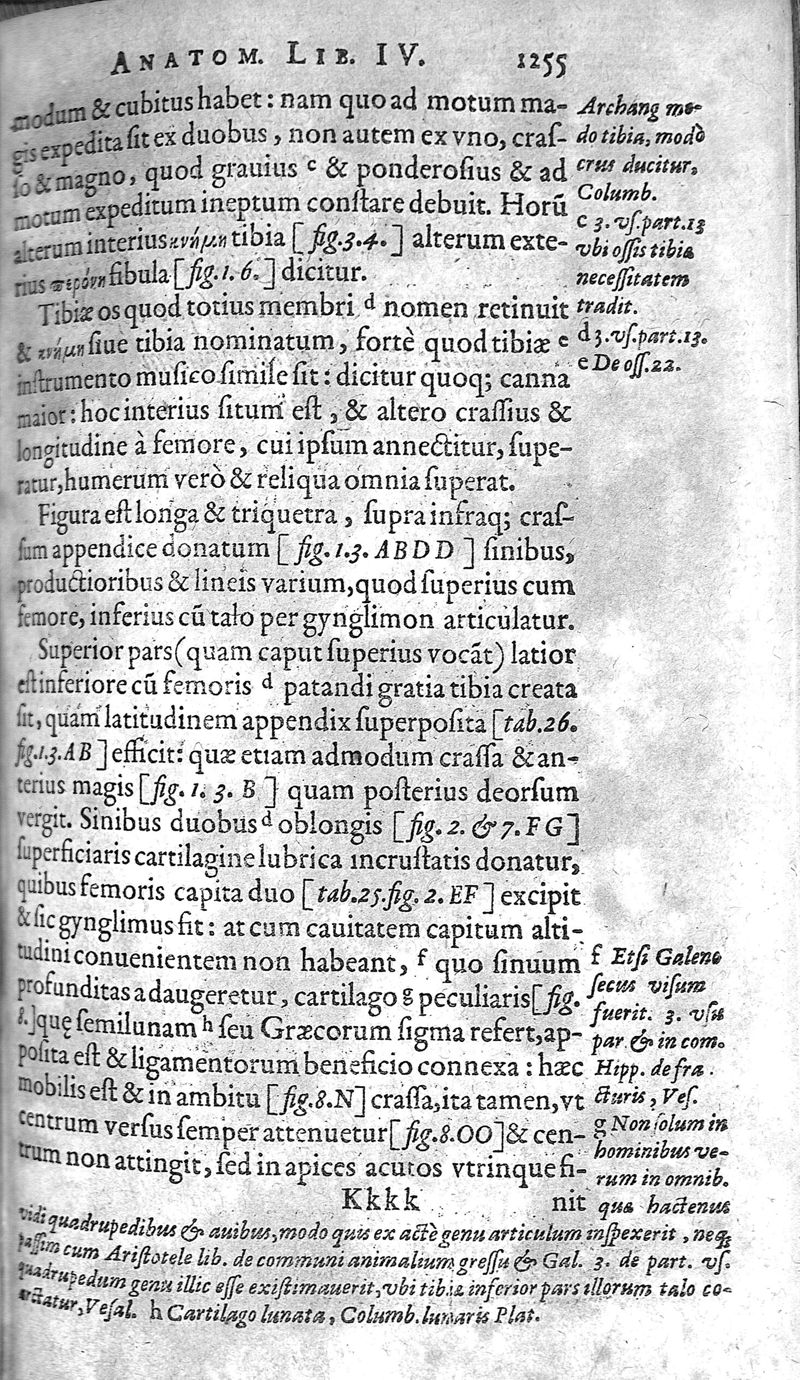 ANATOM. LIB. IV. 1255
modum & cubitus habet: nam quo ad motum ma-
gis expedita ſit ex duobus, non autem ex vno, craſ-
ſo & magno, quod grauius c & ponderoſius & ad
motum expeditum ineptum conſtare debuit. Horū
alterum interius κνήμη tibia [fig.3.4.] alterum exte-
rius περόνη fibula [fig.1.6.] dicitur.
Tibiæ os quod totius membri d nomen retinuit
& κνήμη ſiue tibia nominatum, fortè quod tibiæ e
inſtrumento muſico ſimile ſit: dicitur quoq; canna
maior: hoc interius ſitum eſt, & altero craſſius &
longitudine à femore, cui ipſum annectitur, ſupe-
ratur, humerum verò & reliqua omnia ſuperat.
Figura eſt longa & triquetra, ſupra infraq; craſ-
ſum appendice donatum [fig.1.3. ABDD] ſinibus,
productioribus & lineis varium, quod ſuperius cum
femore, inferius cū talo per gynglimon articulatur.
Superior pars (quam caput ſuperius vocāt) latior
eſt inferiore cū femoris d patandi gratia tibia creata
ſit, quam latitudinem appendix ſuperpoſita [tab.26.
fig.1.3.AB] efficit: quæ etiam admodum craſſa & an-
terius magis [fig.1.3. B] quam poſterius deorſum
vergit. Sinibus duobus d oblongis [fig.2. & 7.FG]
ſuperficiaris cartilagine lubrica incruſtatis donatur,
quibus femoris capita duo [tab.25.fig.2.EF] excipit
& ſic gynglimus fit: at cum cauitatem capitum alti-
tudini conuenientem non habeant, f quo ſinuum
profunditas adaugeretur, cartilago g peculiaris [fig.
8.] quę ſemilunam h ſeu Græcorum ſigma refert, ap-
poſita eſt & ligamentorum beneficio connexa: hæc
mobilis eſt & in ambitu [fig.8.N] craſſa, ita tamen, vt
centrum verſus ſemper attenuetur [fig.8.OO] & cen-
trum non attingit, ſed in apices acutos vtrinque fi-
Kkkk nit
Archang mo-
do tibia, modò
crus ducitur,
Columb.
c 3. vſ.part.13
vbi oſſis tibia
neceſſitatem
tradit.
d 3.vſ.part.13.
e De oſſ.22.
f Etſi Galeno
ſecus viſum
fuerit. 3. vſu
par. & in com.
Hipp. de fra.
cturis, Veſ.
g Non ſolum in
hominibus ve-
rum in omnib.
qua hactenus
vidi quadrupedibus & auibus, modo quis ex actè genu articulum inſpexerit, neq;
paſſim cum Ariſtotele lib. de communi animalium greſſu & Gal. 3. de part. vſ.
quadrupedum genu illic eſſe exiſtimauerit, vbi tibia inferior pars illorum talo co-
arctatur, Veſal. h Cartilago lunata, Columb. lunaris Plat.